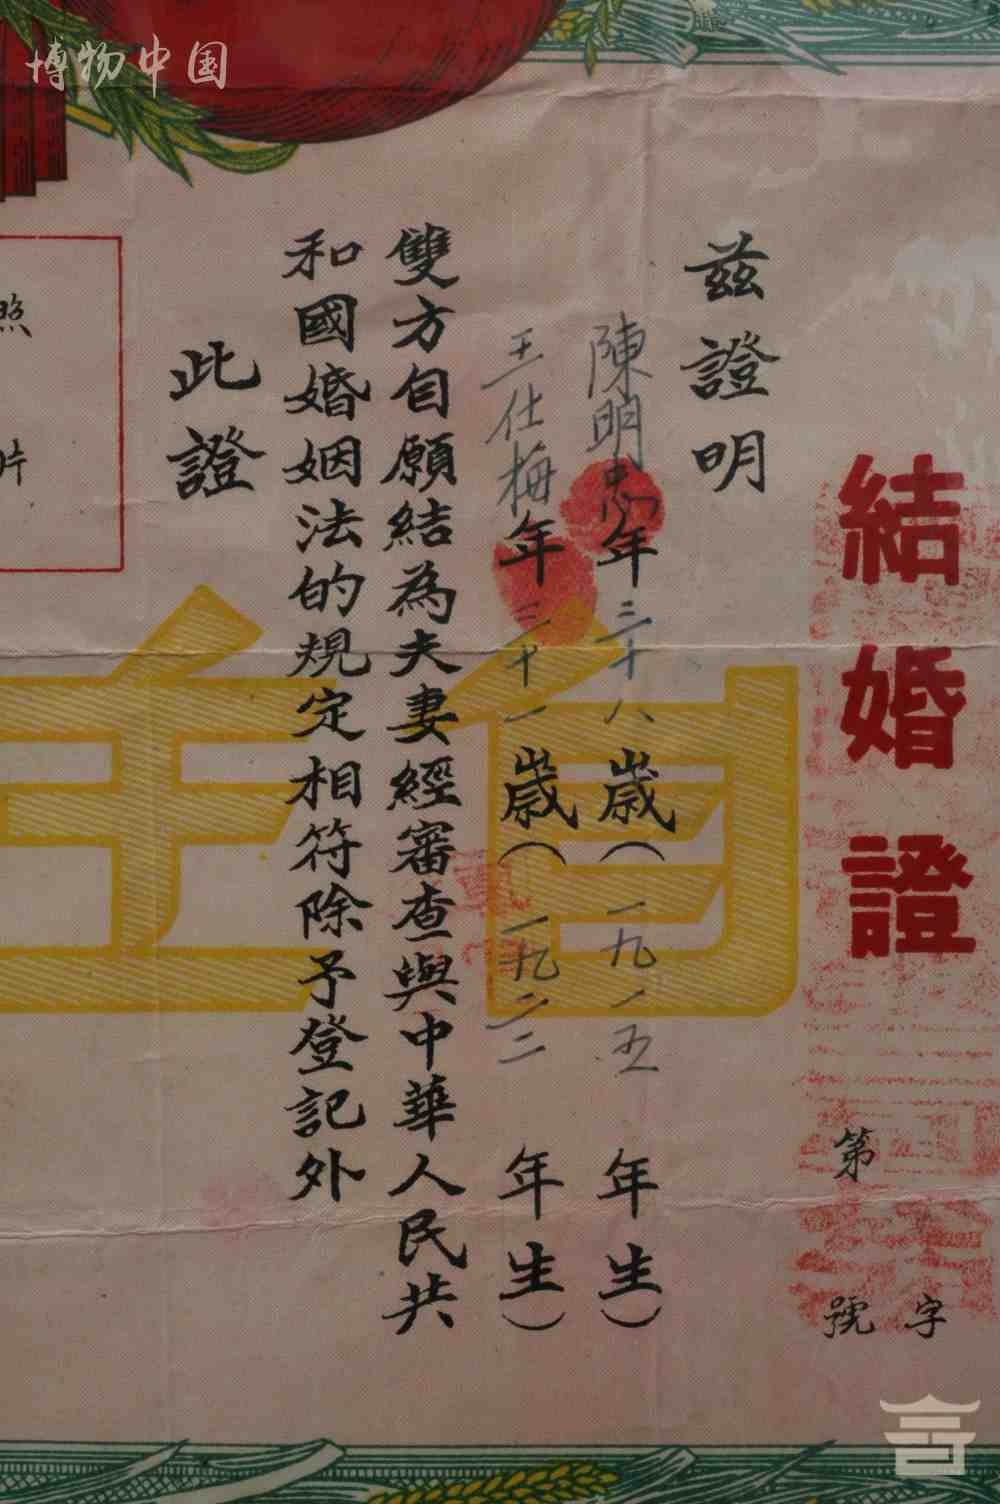 博物中国
結婚證
第 字
號
茲證明
陳明忠年三十八歲（一九一五年生）
王仕梅年三十一歲（一九二二年生）
雙方自願結為夫妻經審查與中華人民共
和國婚姻法的規定相符除予登記外
此證
照片
自主